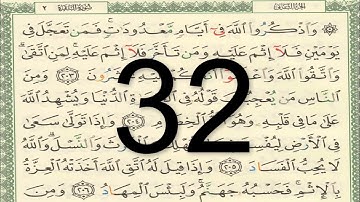 سورة البقرة ٢
وَاذْكُرُوا اللَّهَ فِي أَيَّامٍ مَعْدُودَاتٍ فَمَنْ تَعَجَّلَ فِي
يَوْمَيْنِ فَلَا إِثْمَ عَلَيْهِ وَمَنْ تَأَخَّرَ فَلَا إِثْمَ عَلَيْهِ لِمَنِ اتَّقَى
وَاتَّقُوا اللَّهَ وَاعْلَمُوا
النَّاسِ مَنْ يُعْجِبُكَ قَوْلُهُ فِي الْحَيَاةِ الدُّنْيَا وَيُشْهِدُ اللَّهَ
عَلَى مَا فِي قَلْبِهِ وَهُوَ أَلَدُّ الْخِصَامِ ٢٠٤ وَإِذَا تَوَلَّى سَعَى
فِي الْأَرْضِ لِيُفْسِدَ وَالنَّسْلَ وَاللَّهُ
لَا يُحِبُّ الْفَسَادَ ٢٠٥ وَإِذَا قِيلَ لَهُ اتَّقِ اللَّهَ أَخَذَتْهُ الْعِزَّةُ
بِالْإِثْمِ فَحَسْبُهُ جَهَنَّمُ وَلَبِئْسَ الْمِهَادُ ٢٠٦ وَمِنَ
32